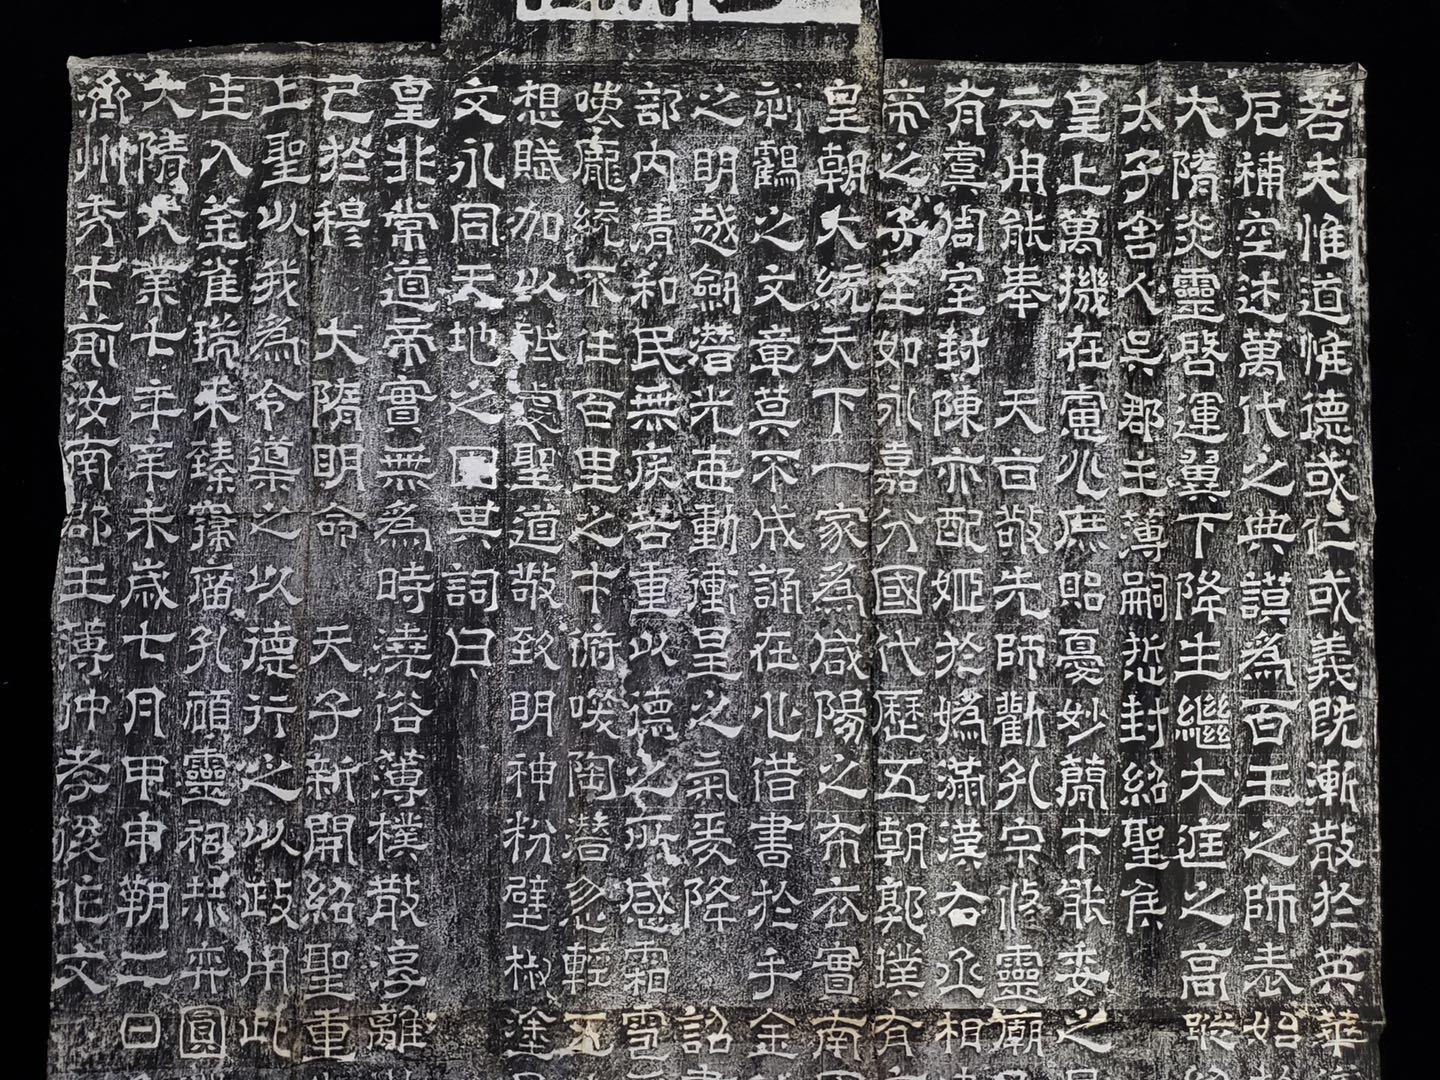 若夫惟道惟德或仁或義既漸散於英華
厄補空述萬代之典謨為百王之師表始
大隋炎靈啓運翼下降生繼大庭之高蹤
太子舍人吳郡主薄嗣悊封紹聖侯
皇上萬機在慮兆庶貽憂妙簡才能委之
云用能奉 天旨敬先師勸孔宗脩靈廟
有虞周室封陳亦配姬於媯滿漢右丞相
帝之子至如永嘉分國代歷五朝郭璞有
皇朝大統天下一家為咸陽之布衣實南
刹鶴之文章莫不成誦在心借書於手金
之明越劒潛光每動衝星之氣爰降詔
部內清和民無疾苦重以德之所感霜雪
嗤龐統不任百里之才俯嘆陶潛忽輕
想賦加以祗虔聖道敬致明神粉壁椒塗
文永同天地之固其詞曰
皇非常道帝實無為時澆俗薄樸散淳離
已於穆 大隋明命 天子新開紹聖重
上聖以我為令導之以德行之以政用此
生入釜雀瑞來臻霂廇孔廟靈祠恭弈圓
大隋大業七年辛未歲七月甲申朔二日
濟州秀才前汝南郡主薄仲孝俊作文